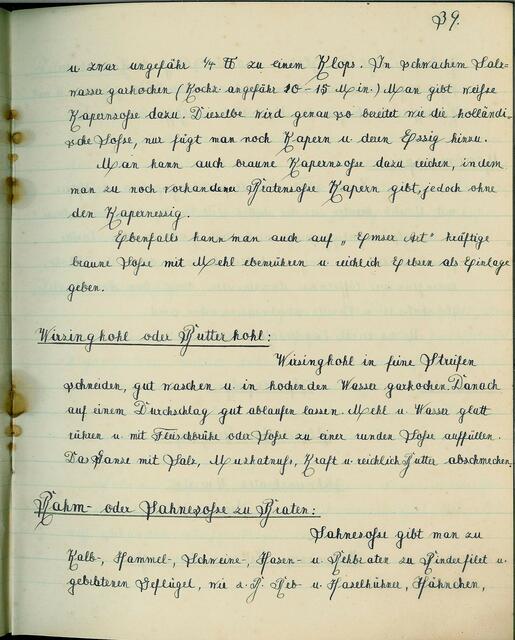 39.
u. zwar ungefähr 1/4 ℔ zu einem Klops. In schwachem Salz-
wasser garkochen (Kochz. angefähr 10-15 Min.) Man gibt weiße
Kapernsoße dazu. Dieselbe wird genau so bereitet wie die holländi-
sche Soße, nur fügt man noch Kapern u. deren Essig hinzu.
Man kann auch braune Kapernsoße dazu reichen, indem
man zu noch vorhandener Bratensoße Kapern gibt, jedoch ohne
den Kapernessig.
Ebenfalls kann man auch auf „Emser Art" kräftige
braune Soße mit Mehl ebenrühren u. reichlich Erbsen als Einlage
geben.
Wirsingkohl oder Butterkohl:
Wirsingkohl in feine Streifen
schneiden, gut waschen u. in kochenden Wasser garkochen. Danach
auf einem Durchschlag gut ablaufen lassen. Mehl u. Wasser glatt
rühren u. mit Fleischbrühe oder Soße zu einer runden Soße auffüllen.
Das Ganze mit Salz, Muskatnuß, Kraft u. reichlich Butter abschmecken.
Rahm- oder Sahnesoße zu Braten:
Sahnesoße gibt man zu
Kalb-, Hammel-, Schweine-, Hasen- u. Rehbraten zu Rinderfilet u.
gebratenen Geflügel, wie z. B. Reb- u. Haselhühner, Hähnchen,